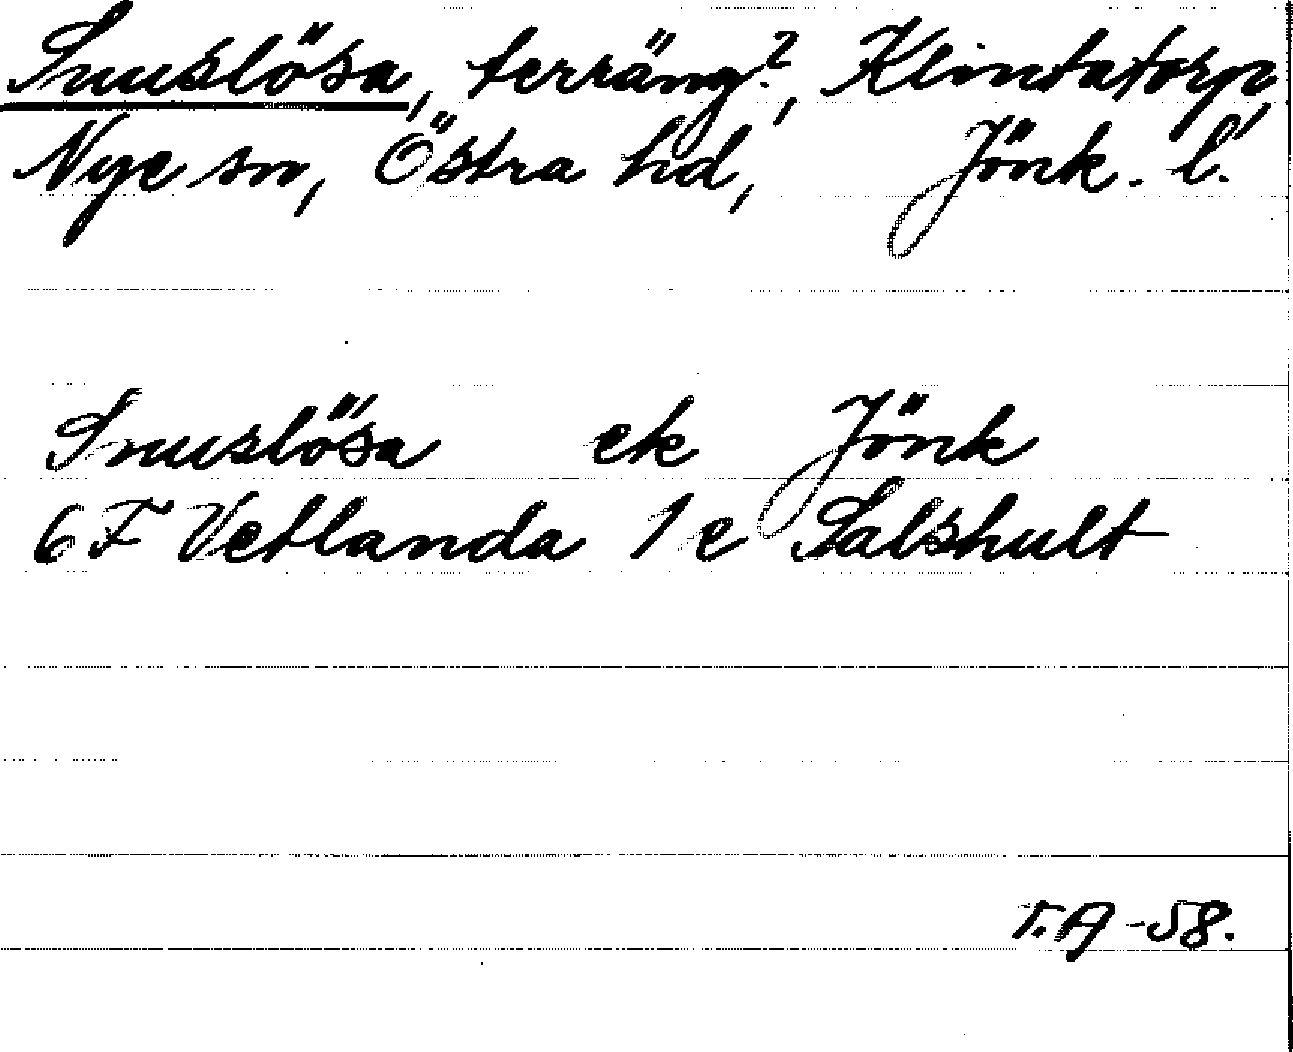 Snuslösa, terräng?, Klintatorp,
Nye sn, Östra hd, Jönk. l.
Snuslösa ek Jönk
6 F Vetlanda 1 e Salshult
T.A -58.